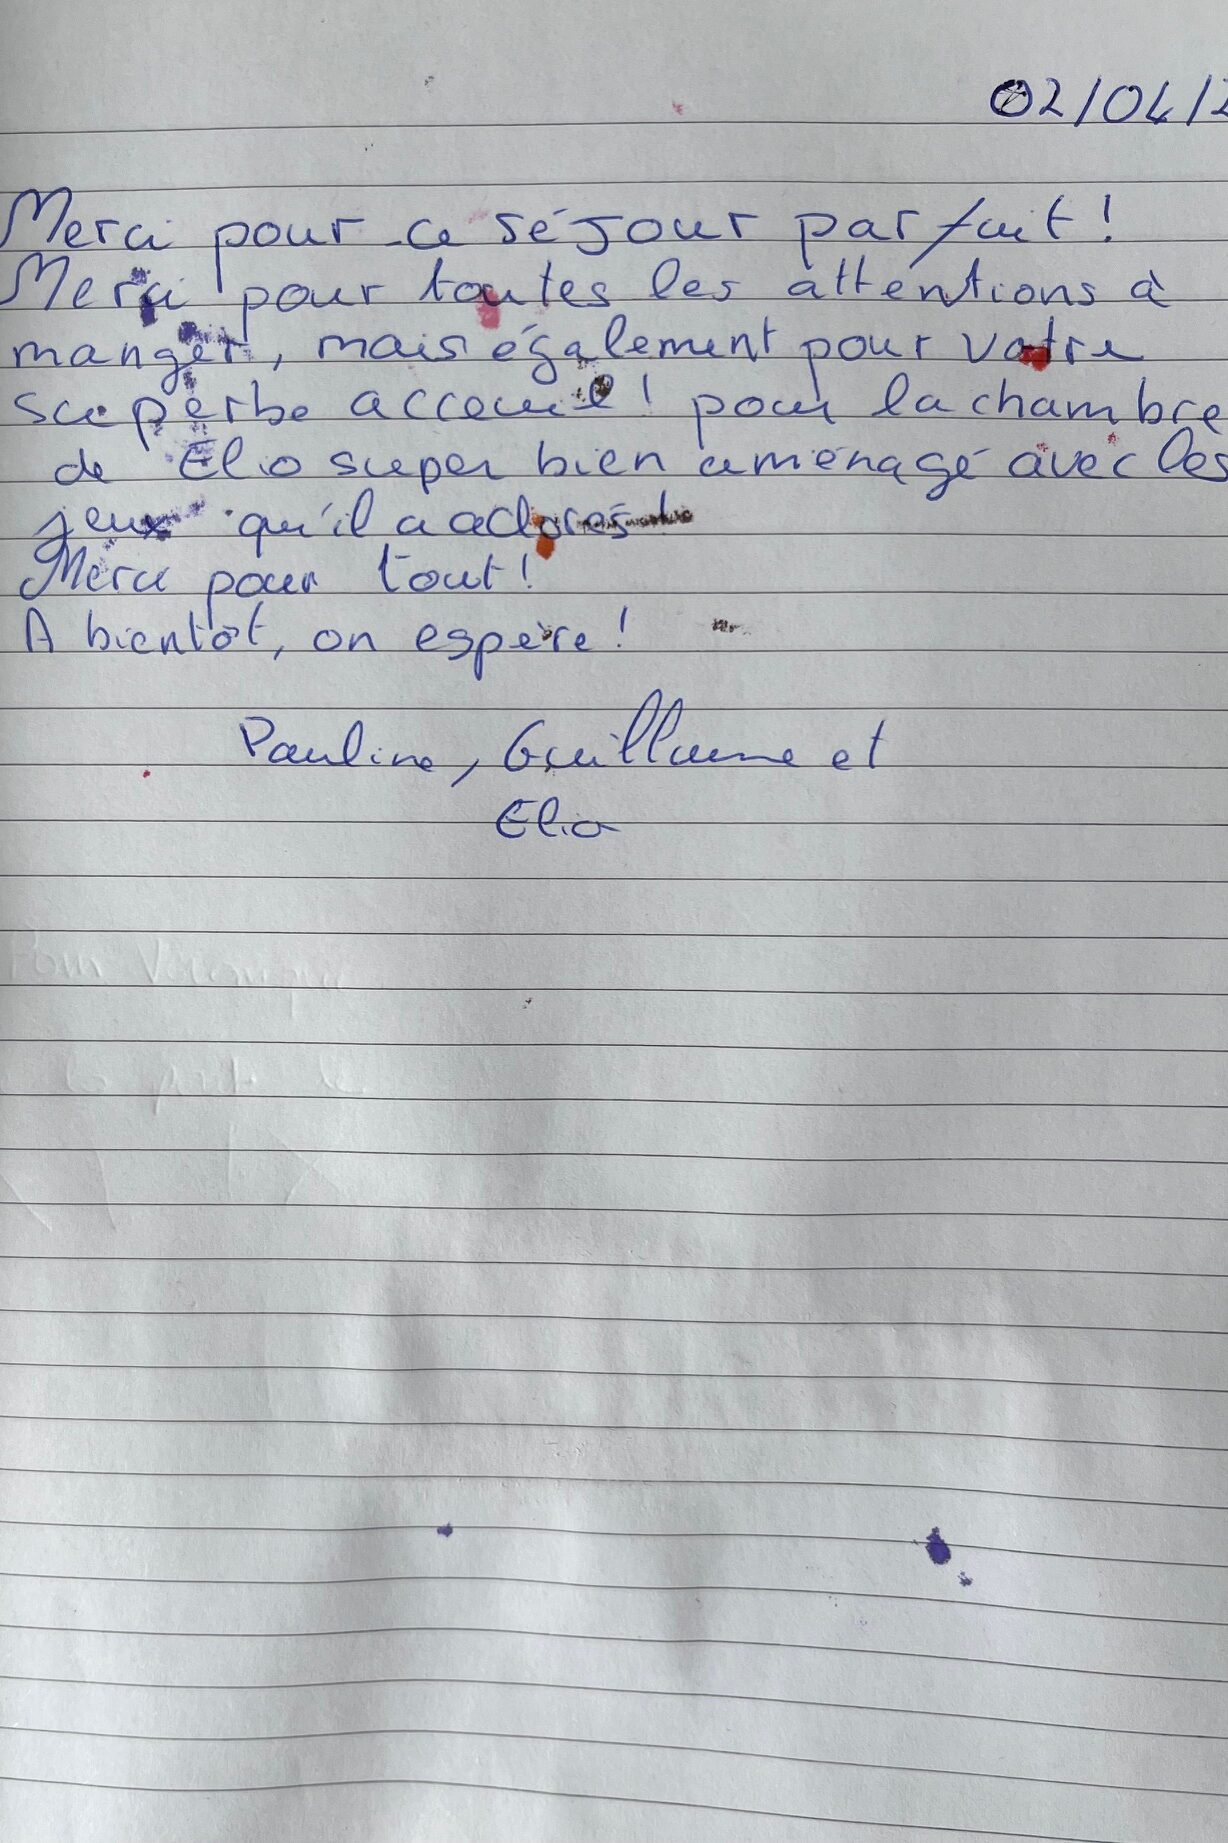 02/04/2
Merci pour ce séjour parfait !
Merci pour toutes les attentions à
manger, mais également pour votre
superbe acceuil ! pour la chambre
de Elio super bien aménagé avec les
jeux qu'il a adorés !
Merci pour tout !
A bientôt, on espère !
Pauline, Guillaume et
Elio